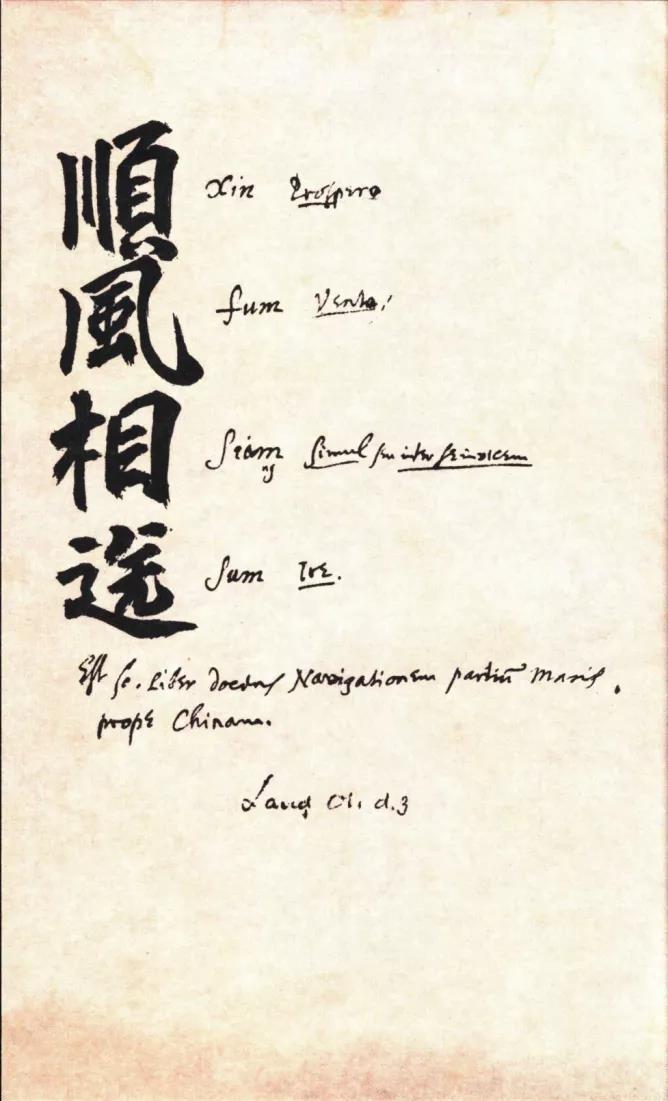 順風相送
Xin Prospero
fum Vento,
Siam simul seu inter se invicem
ng
Sum Ire.
Est sc. Liber docens Navigationem partiū Maris,
prope Chinam.
Laud Or. d.3